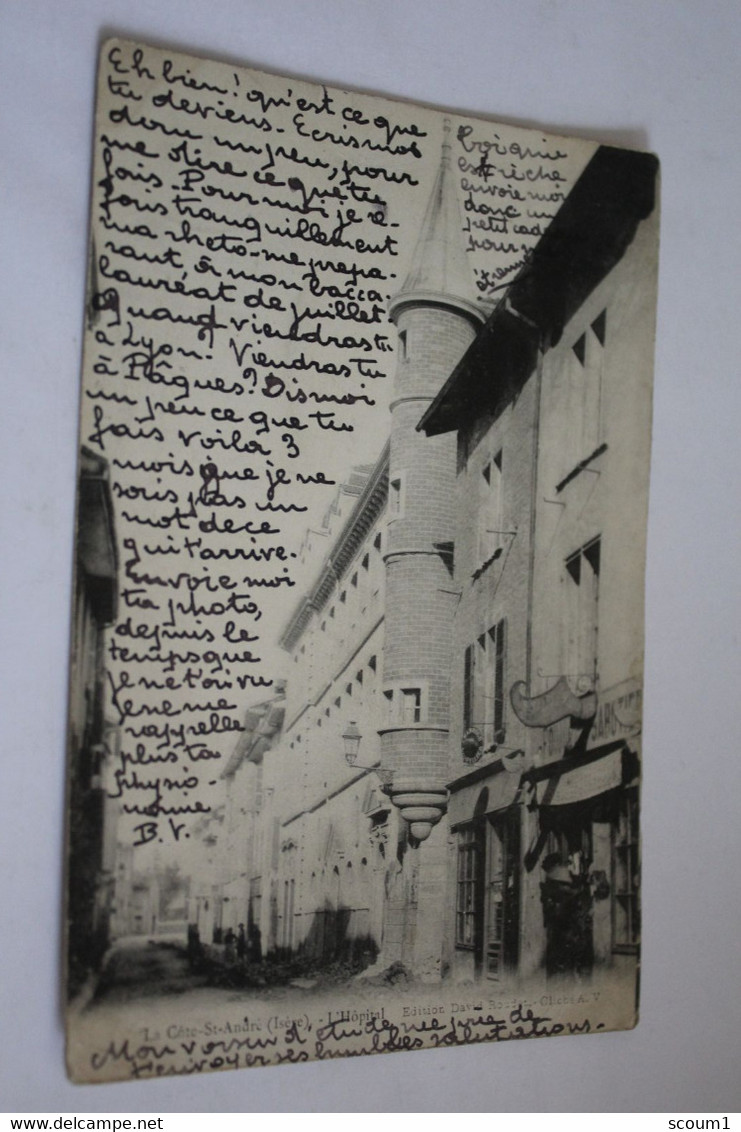 Eh bien! qu'est ce que
tu deviens. Ecris moi
donc un peu, pour
me dire ce que tu
fais. Pour moi je e-
fais tranquillement
ma rhéto - me prépa-
rant, à mon bacca-
lauréat de juillet.
Quand viendras tu
à Lyon? Viendras tu
à Pâques? Dis moi
un peu ce que tu
fais voilà 3
mois que je ne
sais pas un
mot de ce
qui t'arrive.
Envoie moi
ta photo,
depuis le
temps que
je ne t'ai vu
je ne me
rappelle
plus ta
physio-
nomie
B. V.
toi qui
es riche
envoie moi
donc un
petit cade
pour m
étrenn
La Côte-St-André (Isère). - L'Hôpital
Edition David Cliché A. V
Mon voisin d'étude me prie de
t'envoyer ses humbles salutations.
scoum1